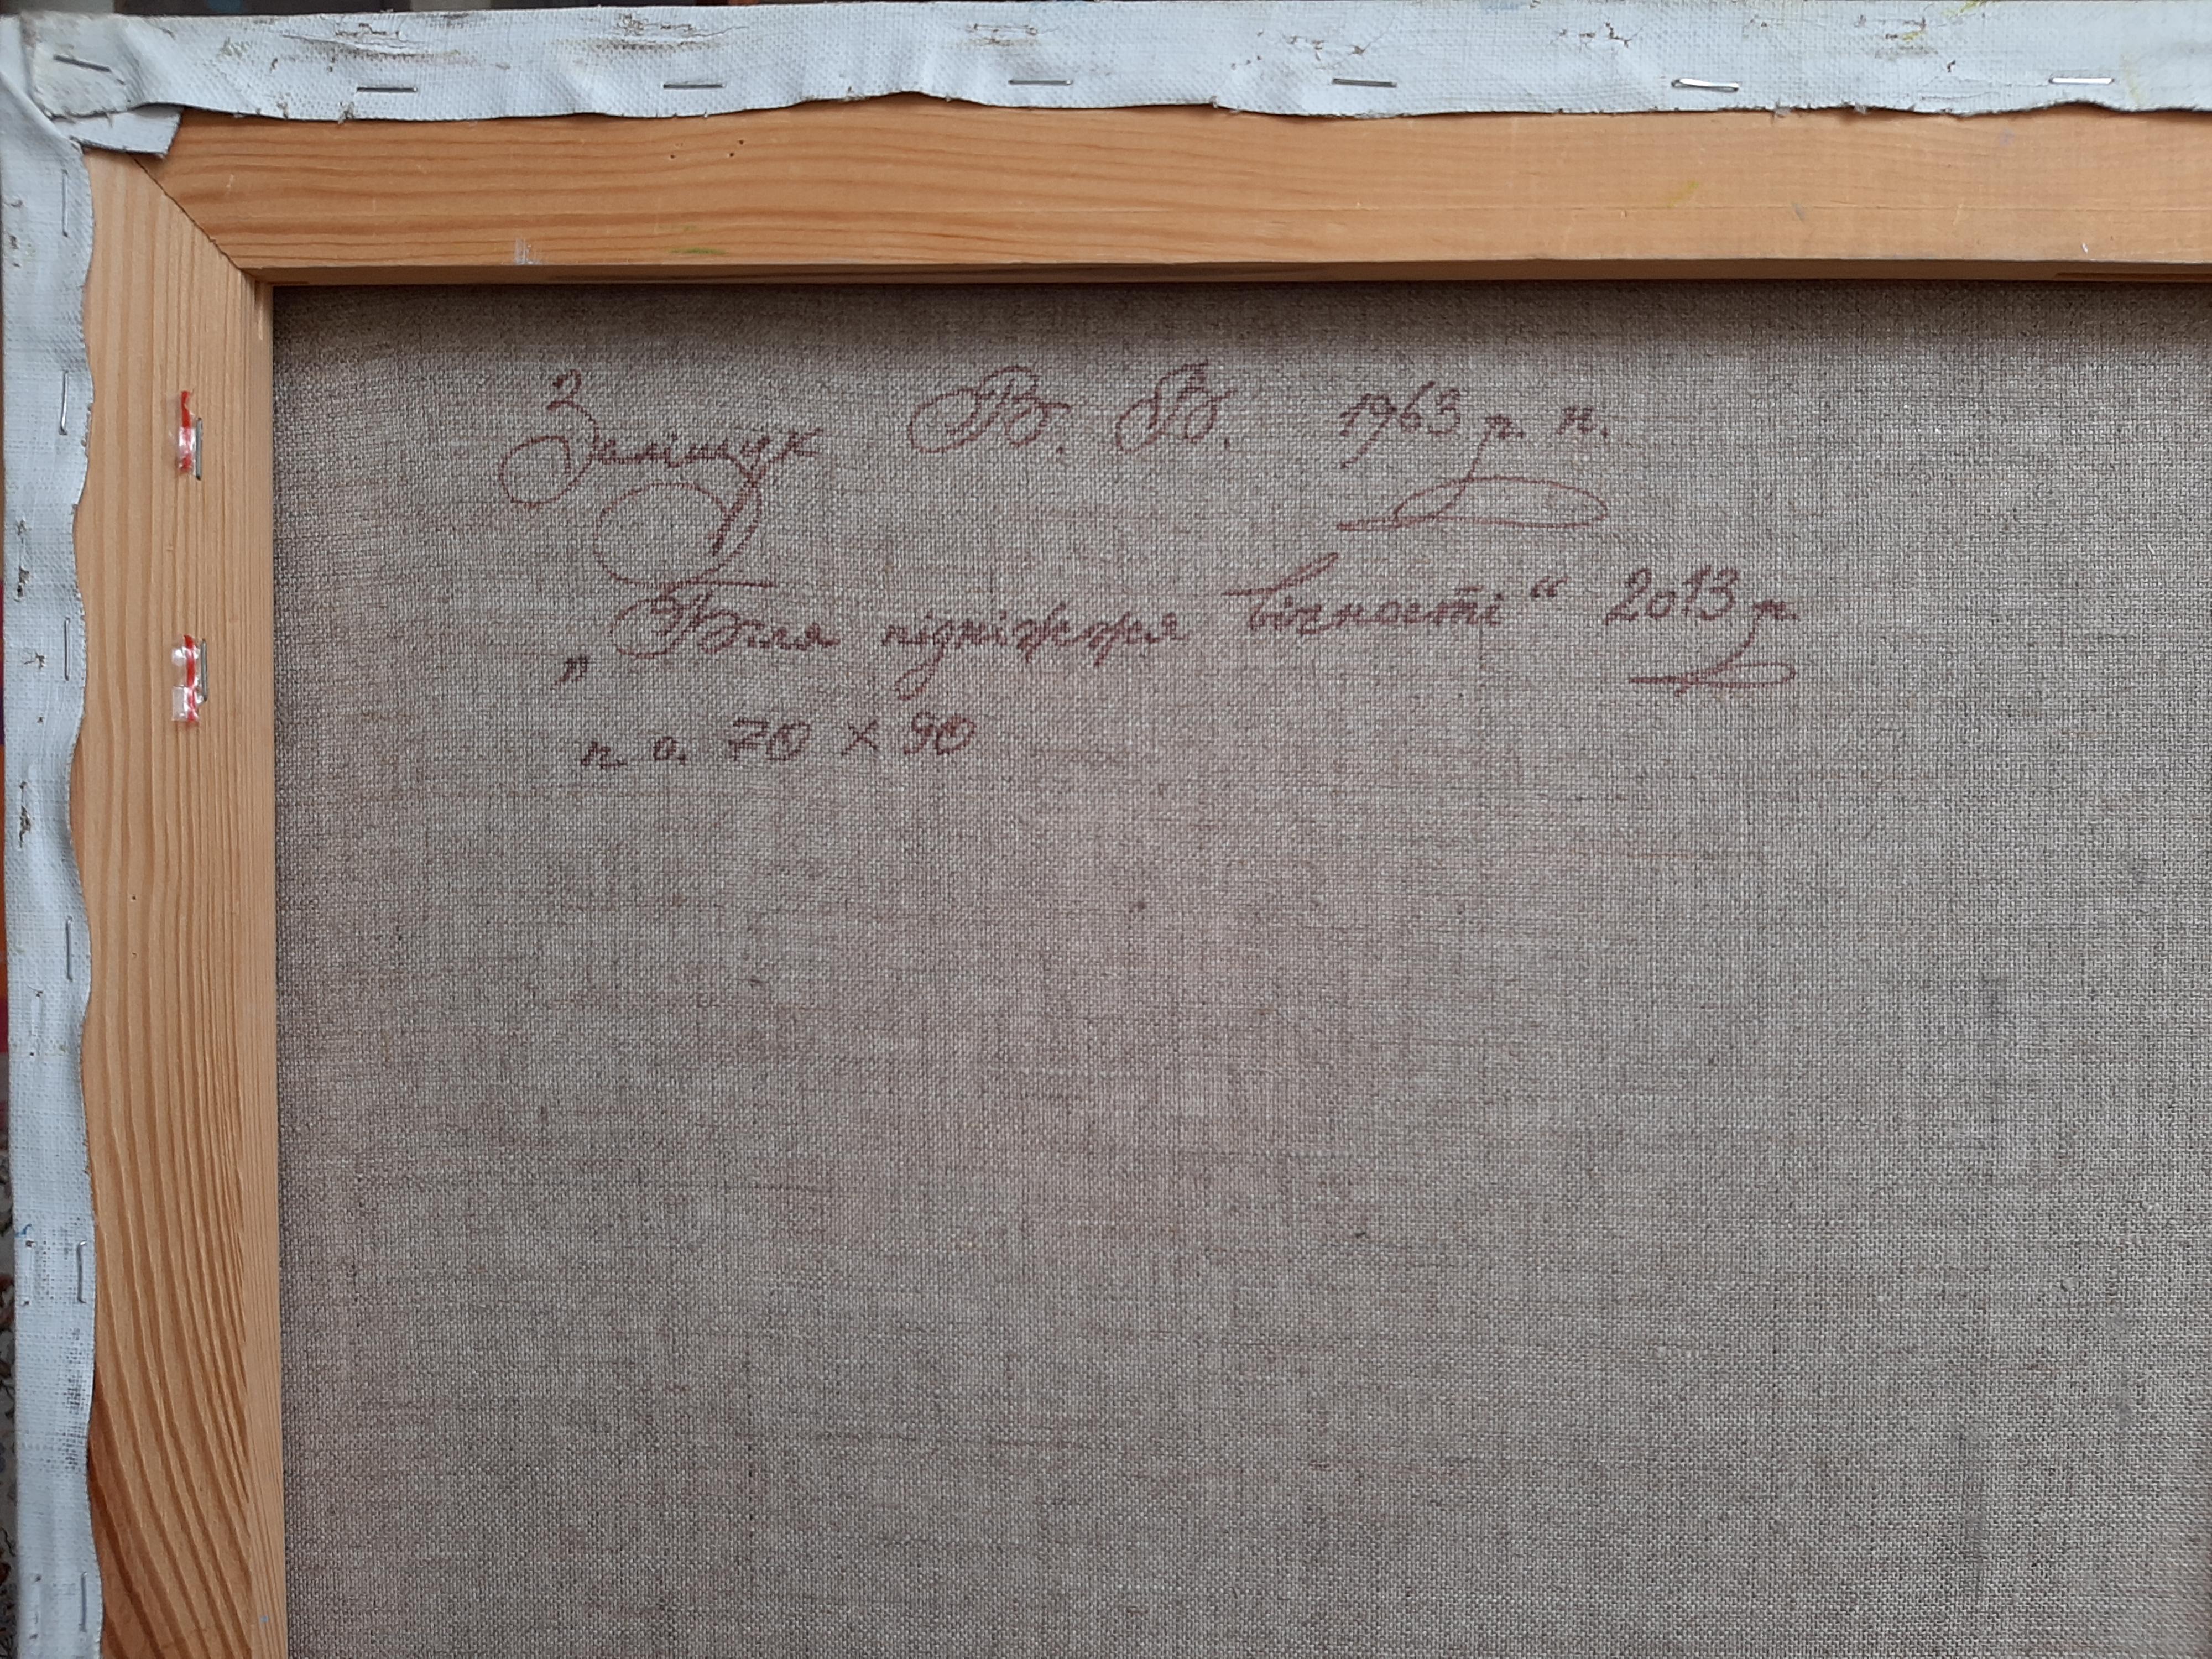 Заліщук В. В. 1963 р. н.
„Біля підніжжя вічності“ 2013 р.
п. о. 70 х 90